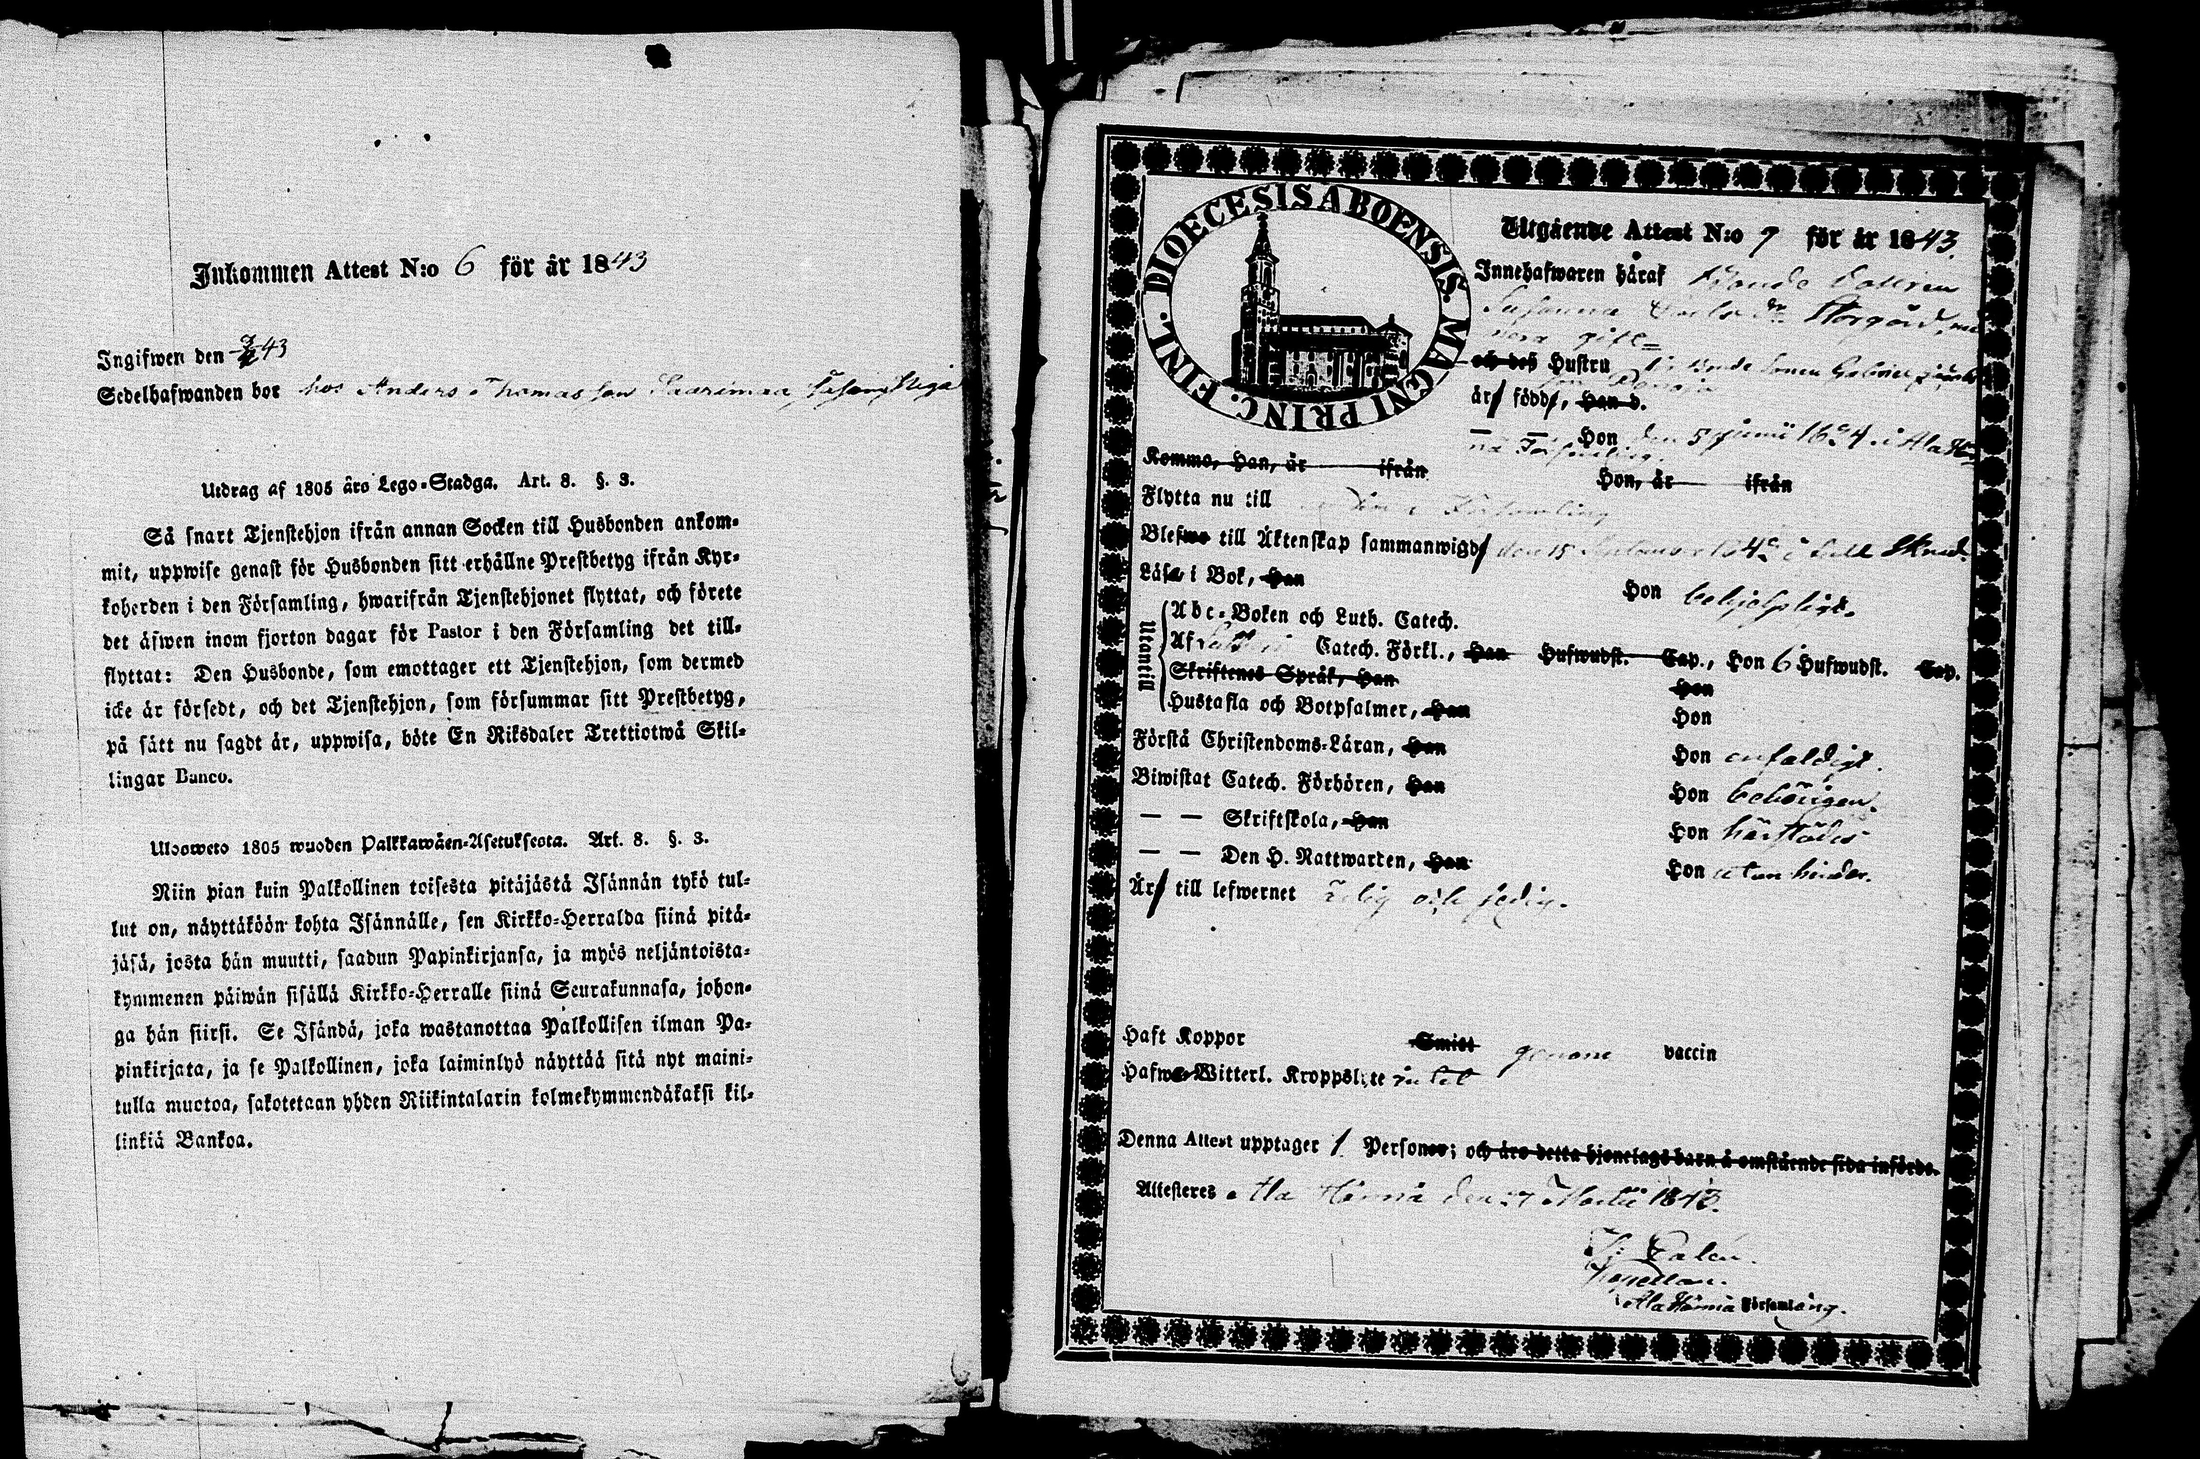 Inkommen Attest N:o 6 för år 1843
Ingifwen den 43
Sedelhafwanden bor hos Anders Thomasson
Utdrag af 1805 års Lego-Stadga. Art. 8. §. 3.
Så snart Tjenstehjon ifrån annan Socken till Husbonden ankom-
mit, uppwise genast för Husbonden sitt erhållne Prestbetyg ifrån Kyr-
koherden i den Församling, hwarifrån Tjenstehjonet flyttat, och förete
det äfwen inom fjorton dagar för Pastor i den Församling det till-
flyttat: Den Husbonde, som emottager ett Tjenstehjon, som dermed
icke är försedt, och det Tjenstehjon, som försummar sitt Prestbetyg,
på sätt nu sagdt är, uppwisa, böte En Riksdaler Trettiotwå Skil-
lingar Banco.
Uloosweto 1805 wuoden Palkkawäen-Asetuksesta. Art. 8. §. 3.
Niin pian kuin Palkollinen toisesta pitäjästä Isännän tykö tul-
lut on, näyttäköön kohta Isännälle, sen Kirkko-Herralda siinä pitä-
jäsä, josta hän muutti, saadun Papinkirjansa, ja myös neljäntoista-
kymmenen päiwän sisällä Kirkko-Herralle siinä Seurakunnasa, johon-
ga hän siirsi. Se Isändä, joka wastanottaa Palkollisen ilman Pa-
pinkirjata, ja se Palkollinen, joka laiminlyö näyttää sitä nyt maini-
tulla muotoa, sakotetaan yhden Riikintalarin kolmekymmendäkaksi kil-
linkiä Bankoa.
DIOECESIS ABOENSIS. MAGNI PRINC. FINL.
Utgående Attest N:o 9 för år 1843.
Innehafwaren häraf Bonde Dottren
Susanna Storgård,
och des Hustru
är född, Han d.
— — Hon den 5 Junii 1824 i
Församling.
Kommo, Han, år ifrån Hon, år ifrån
Flytta nu till Församling
Blefwo till Äktenskap sammanwigd den 15
Läsa i Bok, Han Hon behjelpligt.
Utantill
Abc-Boken och Luth. Catech.
Af Catech. Förkl., Han Hufwudst. Cap., Hon 6 Hufwudst. Cap.
Skriftenes Språk, Han Hon
Hustafla och Botpsalmer, Han Hon
Förstå Christendoms-Läran, Han Hon enfaldigt.
Biwistat Catech. Förhören, Han Hon behörigen.
— — Skriftskola, Han Hon härstädes
— — Den H. Nattwarden, Han Hon utan hinder.
Är till lefwernet ärlig och sedig.
Haft Koppor Smitt genom vaccin
Hafwa Witterl. Kroppslyte intet
Denna Attest upptager 1 Personer; och äro detta hjonelags barn å omstående sida införde.
Attesteras Ala Härmä den 27 Martii 1843.
Kapellan.
Ala Härmä Församling.